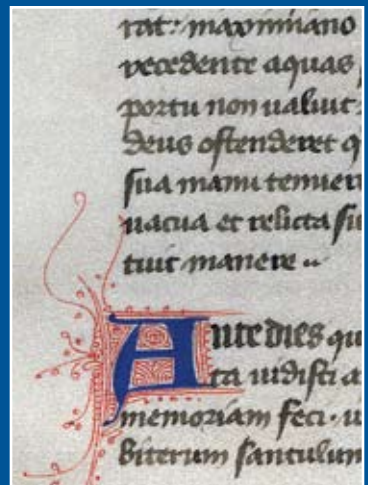 rat: maximiano
recedente aquas
portu non ualuit.
deus ostenderet q
sua manu tenuer
uacua et relicta su
tuit manere
Ante dies qu
ta uidisti a
memoriam feci. u
biterum sanctulum